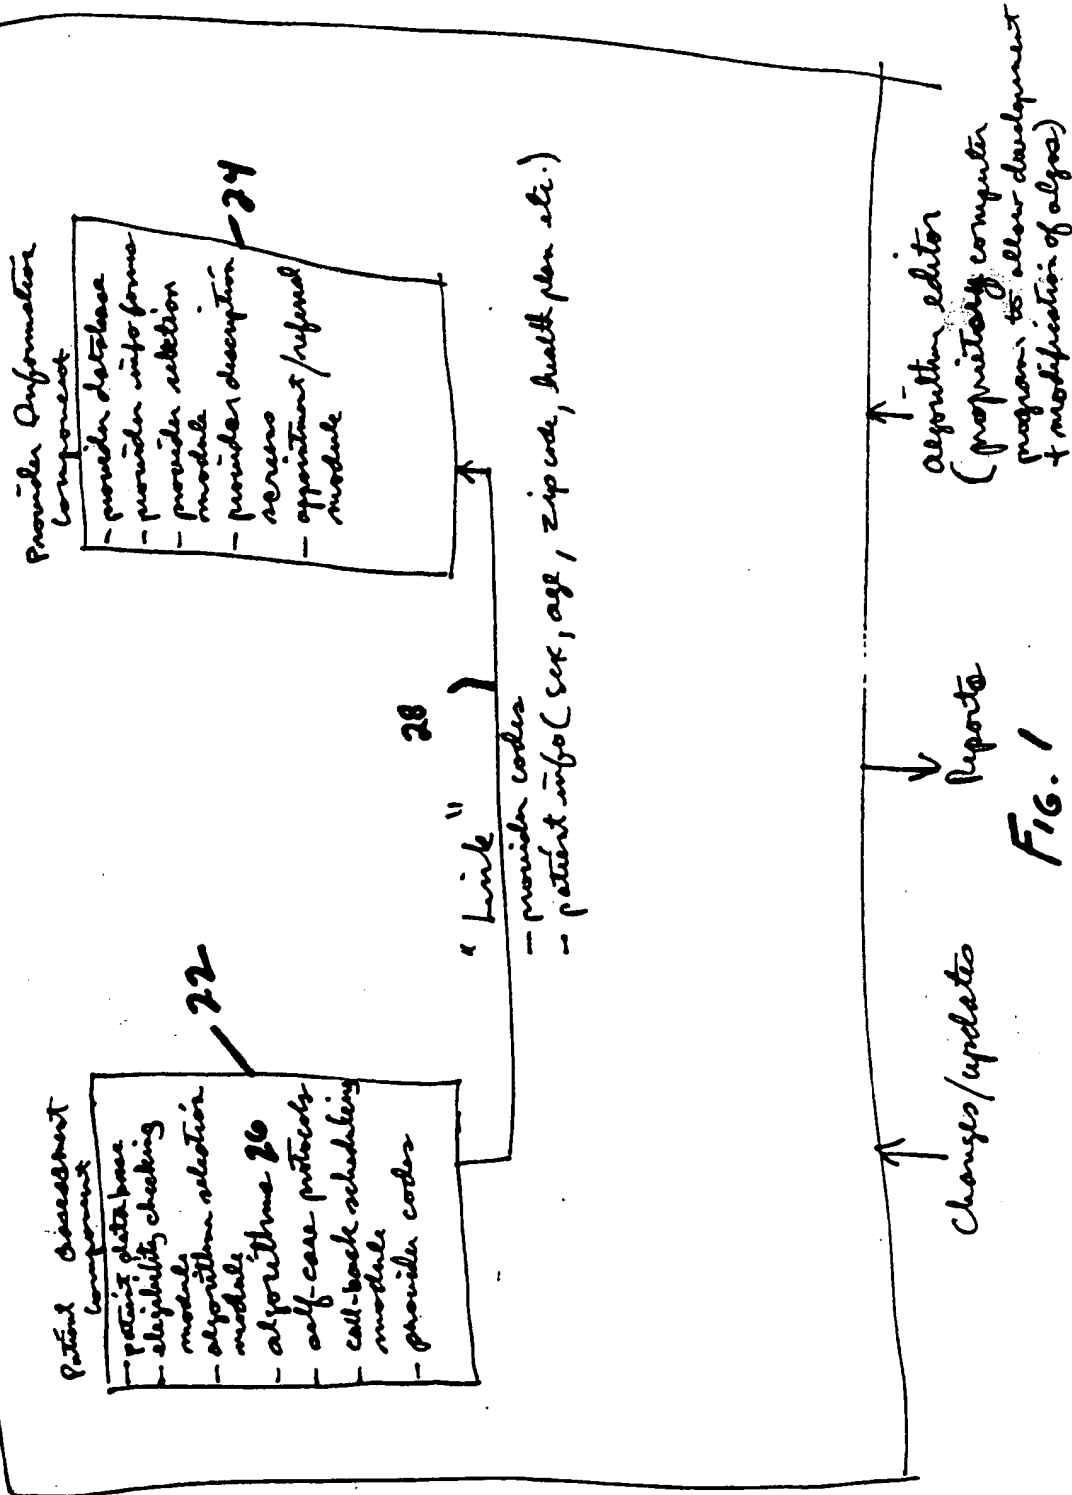 Patient assessment
component
- patient data base
- eligibility checking
module
- algorithm selection
module
- algorithms 26
- self-care protocols
- call-back scheduling
module
- provider codes
22
Provider Information
Component
- provider database
- provider info forms
- provider selection
module
- provider description
screens
- appointment/referral
module
24
28
"Link"
- provider codes
- patient info (sex, age, zip code, health plan etc.)
Changes/updates
Reports
algorithm editor
(proprietary computer
program to allow development
+ modification of algos)
FIG. 1